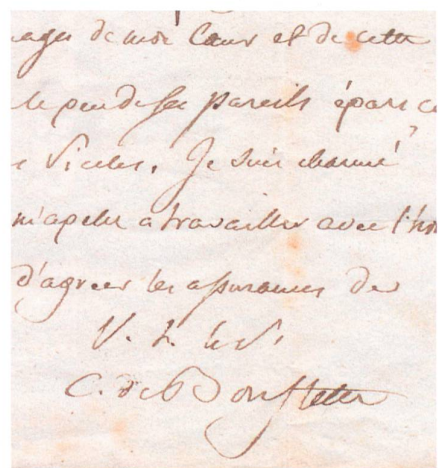 ages de mon Cœur et de cette
le peu de ses pareils épars
Siecles. Je suis charmé
m'apelle a travailler avec l'ho
d'agreer les assurances de
C. de Bonstetten